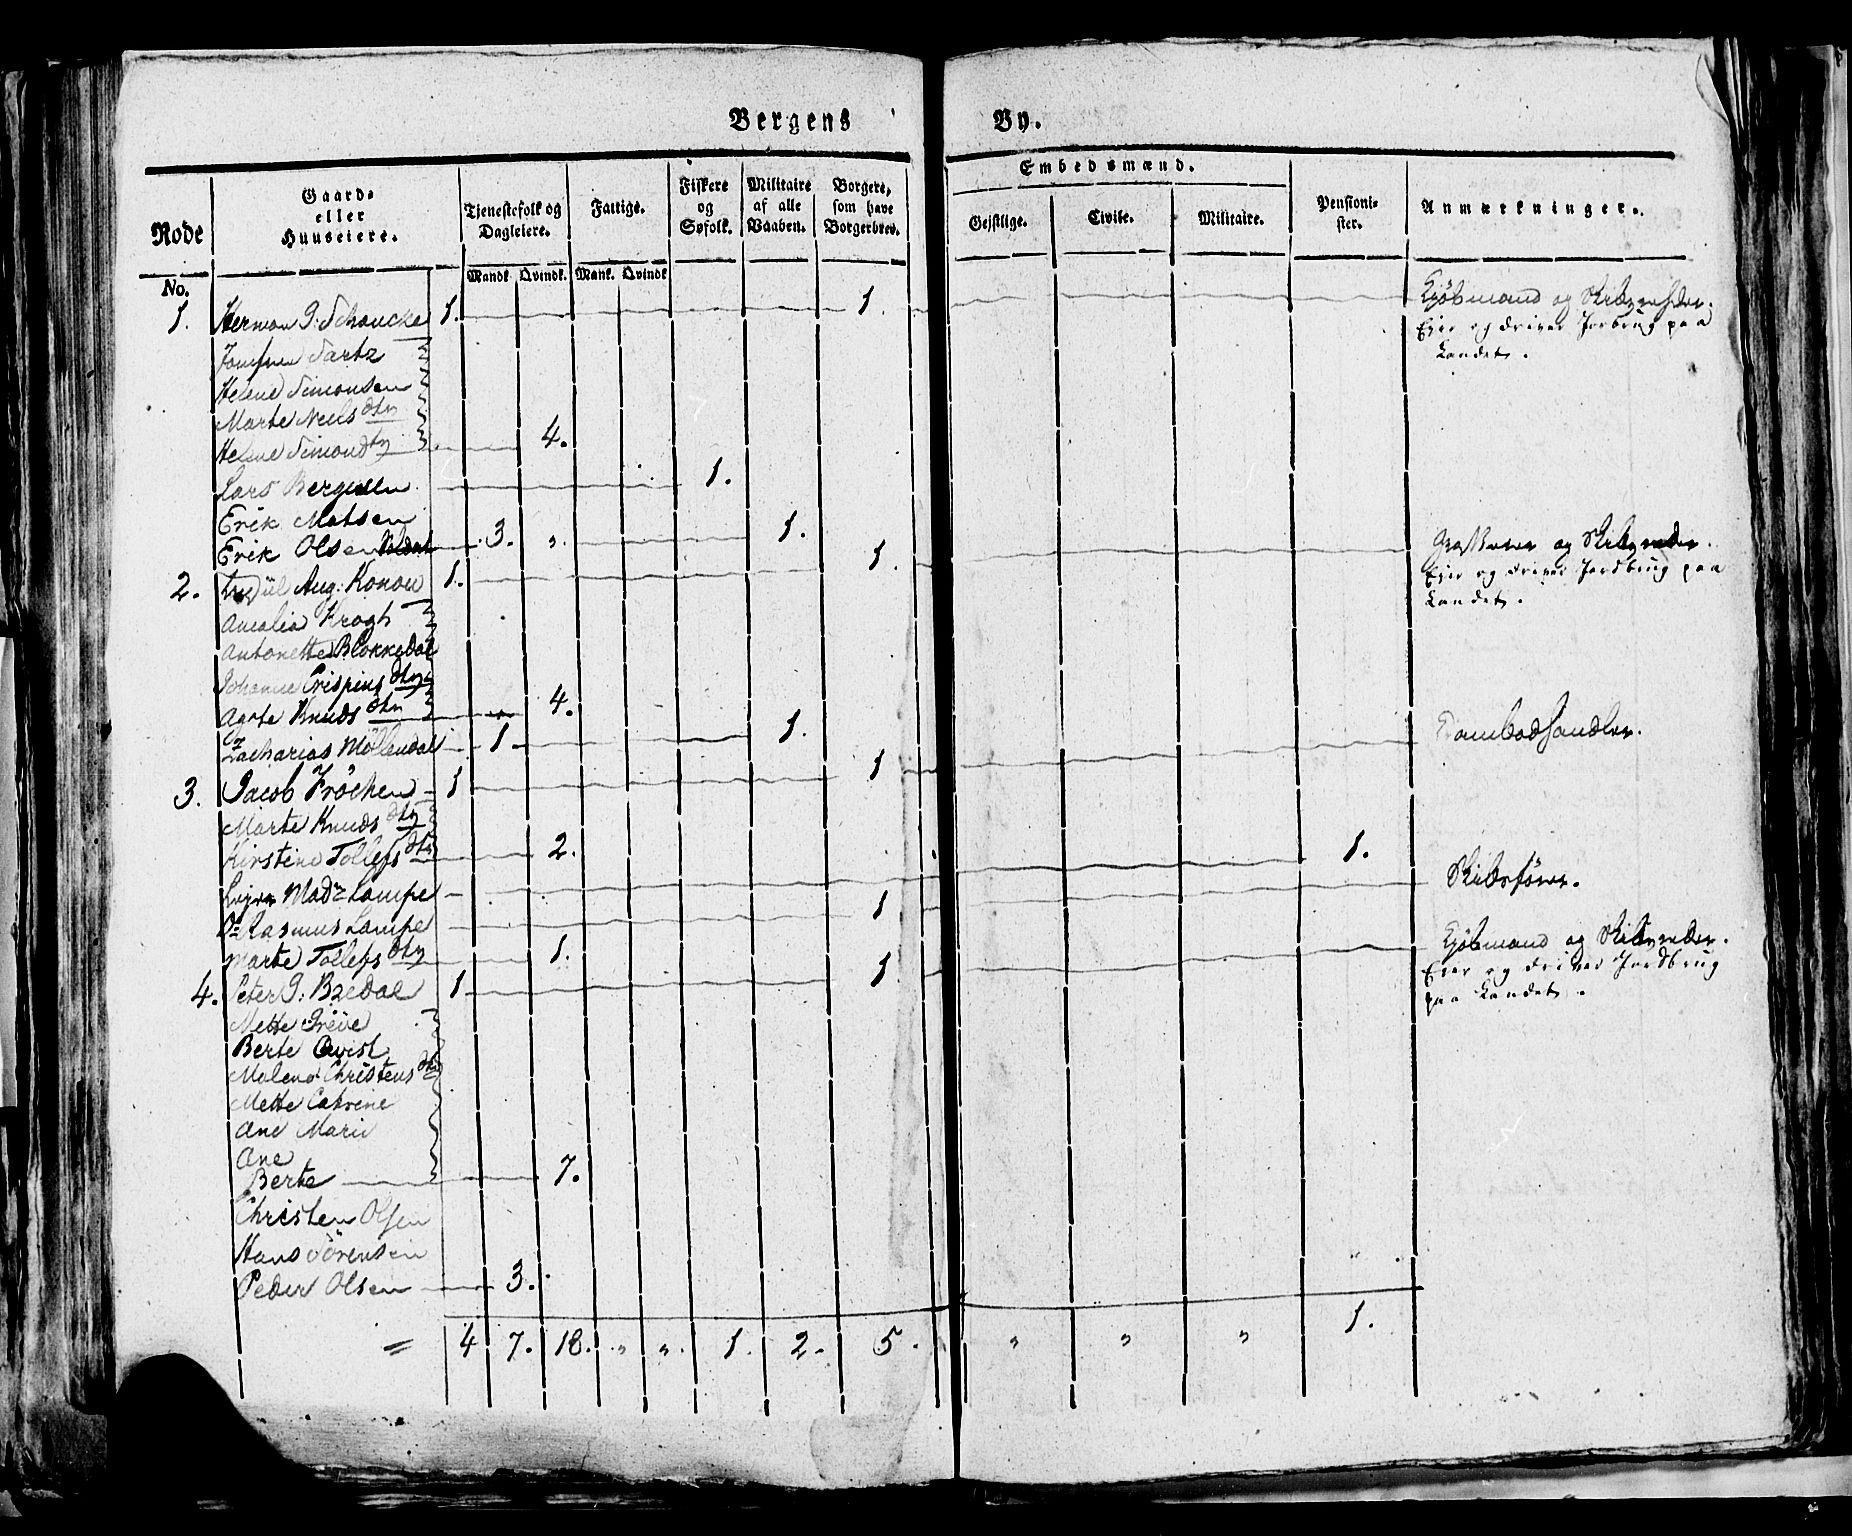 Bergens By.
Rode
Gaard-
eller
Huuseiere.
Tjenestefolk og
Dagleiere.
Fattige.
Fiskere
og
Søfolk.
Militaire
af alle
Vaaben.
Borgere,
som have
Borgerbrev.
Embedsmænd.
Gejstlige.
Civile.
Militaire.
Pensioni-
ster.
Anmærkninger.
No.
Mandk. Qvindk. Mank. Qvindk
1. Herman G. Schancke 1. 1. Kjøbmand og Skibsrheder.
Ejer og driver Jorbrug paa
Landet.
Jomfrue Sartz
Helene Simonsen
Marte Neels dtr
Helene Simondtr 4.
Lars Bergesen 1.
Erik Matsen
Erik Olsen 3. " 1.
2. Aug: Konow 1. 1. og Skibsrheder.
Ejer og driver Jordbrug paa
Landet.
Amalia Krogh
Antonette Blokkedal
Johanne Crispins dtr
Agate Knuds dtr 4.
Zacharias Möllendal 1 1. Krambodhandler.
3. Jacob Fröchen 1 1
Marte Knuds dtr
Kirstine Tollefs dtr 2.
Mad: Lampe 1. Skibsfører.
Rasmus Lampe 1
Marte Tollefs dtr 1. Kjøbmand og Skibsrheder.
Ejer og driver Jordbrug
paa Landet.
4. Peter G: Bredal 1 1
Mette Greve
Berte Qvist
Malena Christens dtr
Mette Catrine
Ane Marie
Ane
Berte 7.
Christen Olsen
Hans Sörensen
Peder Olsen 3.
= 4 7. 18. " " 1. 2. 5. " " " 1.